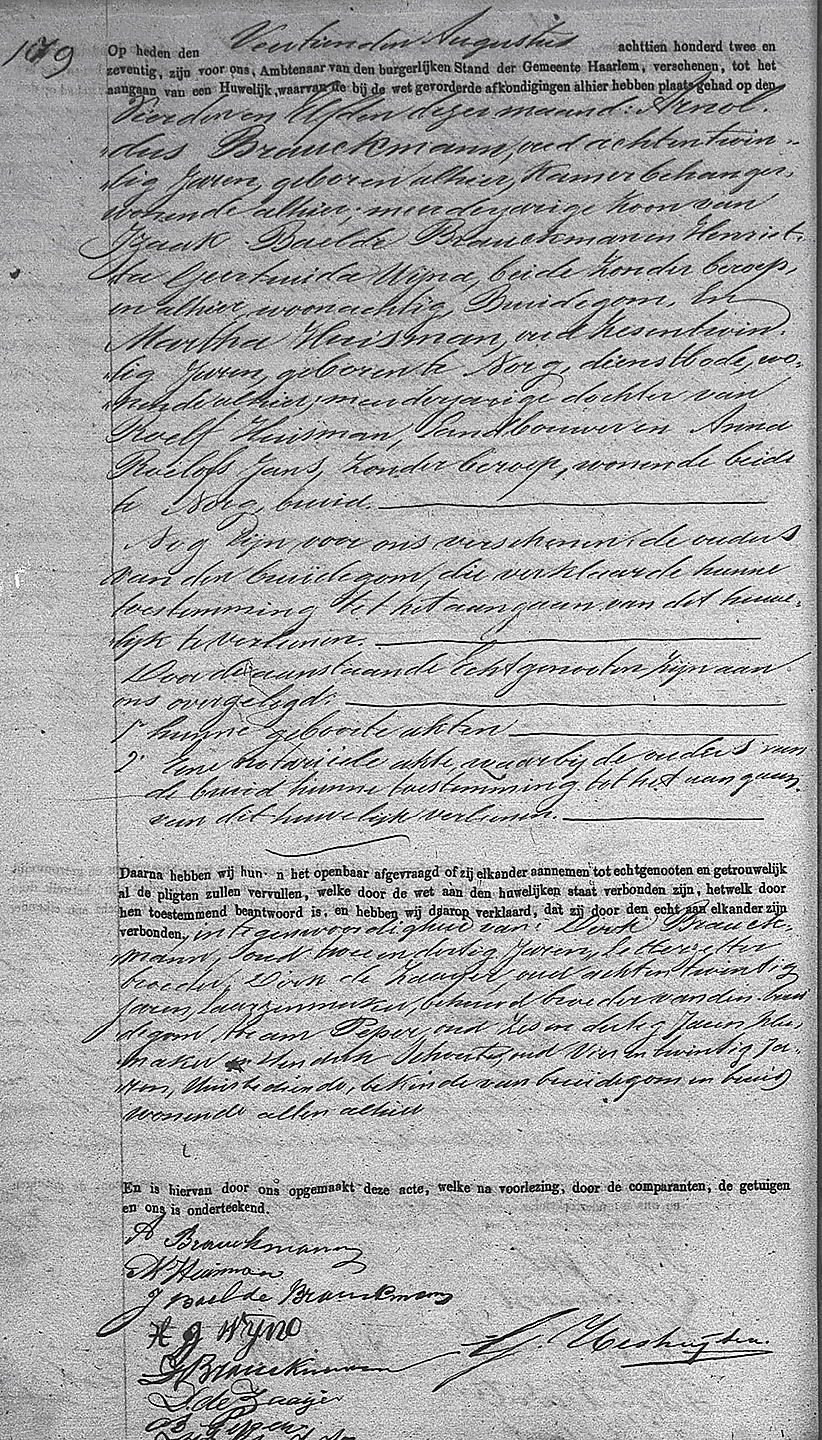 179
Op heden den Veertienden Augustus achttien honderd twee en
zeventig, zijn voor ons, Ambtenaar van den burgerlijken Stand der Gemeente Haarlem, verschenen, tot het
aangaan van een Huwelijk, waarvan de bij de wet gevorderde afkondigingen alhier hebben plaats gehad op den
Vierden en Elfden dezer maand: Arnol-
dus Brauckmann, oud achtentwin-
tig Jaren, geboren alhier, Kamerbehanger,
wonende alhier, meerderjarige Zoon van
Izaak Baelde Brauckmann en Henriet-
ta Geertruida Wijna, beide Zonder beroep,
en alhier woonachtig, Bruidegom, En
Martha Huisman, oud Zesentwin-
tig Jaren, geboren te Norg, dienstbode, wo-
nende alhier, meerderjarige dochter van
Roelf Huisman, Landbouwer en Anna
Roelofs Jans, Zonder beroep, wonende beide
te Norg, bruid.
Nog Zijn voor ons verschenen de ouders
van den bruidegom, die verklaarde hunne
toestemming tot het aangaan van dit huwe-
lijk te verleenen.
Door de aanstaande Echtgenooten zijn aan
ons overgelegd:
1° hunne geboorte akten
2° Eene notariele akte waarbij de ouders van
de bruid hunne toestemming tot het aangaan
van dit huwelijk verleenen.
Daarna hebben wij hun n het openbaar afgevraagd of zij elkander aannemen tot echtgenooten en getrouwelijk
al de pligten zullen vervullen, welke door de wet aan den huwelijken staat verbonden zijn, hetwelk door
hen toestemmend beantwoord is, en hebben wij daarop verklaard, dat zij door den echt aan elkander zijn
verbonden, in tegenwoordigheid van: Dirk Brauck-
mann, oud twee en dertig Jaren, letterzetter
broeder, Dirk de Zaayer, oud achtentwintig
Jaren, behuwd broeder van den brui
degom, Peper, oud Zes en dertig Jaren
maker en Hendrik oud Vier en twintig Ja-
ren, bekende van bruidegom en bruid
wonende allen alhier
En is hiervan door ons opgemaakt deze acte, welke na voorlezing, door de comparanten, de getuigen
en ons is onderteekend.
A Brauckmann
M Huisman
J Baelde Brauckmann
H g Wyna
D Brauckmann
D. de Zaayer